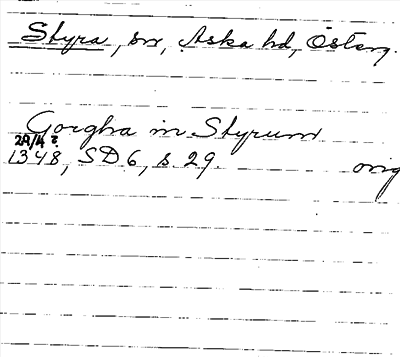 Styra, sn, Aska hd, Österg.
Gorgha in Styrum
29/4 ?
1348, SD 6, s 29. orig